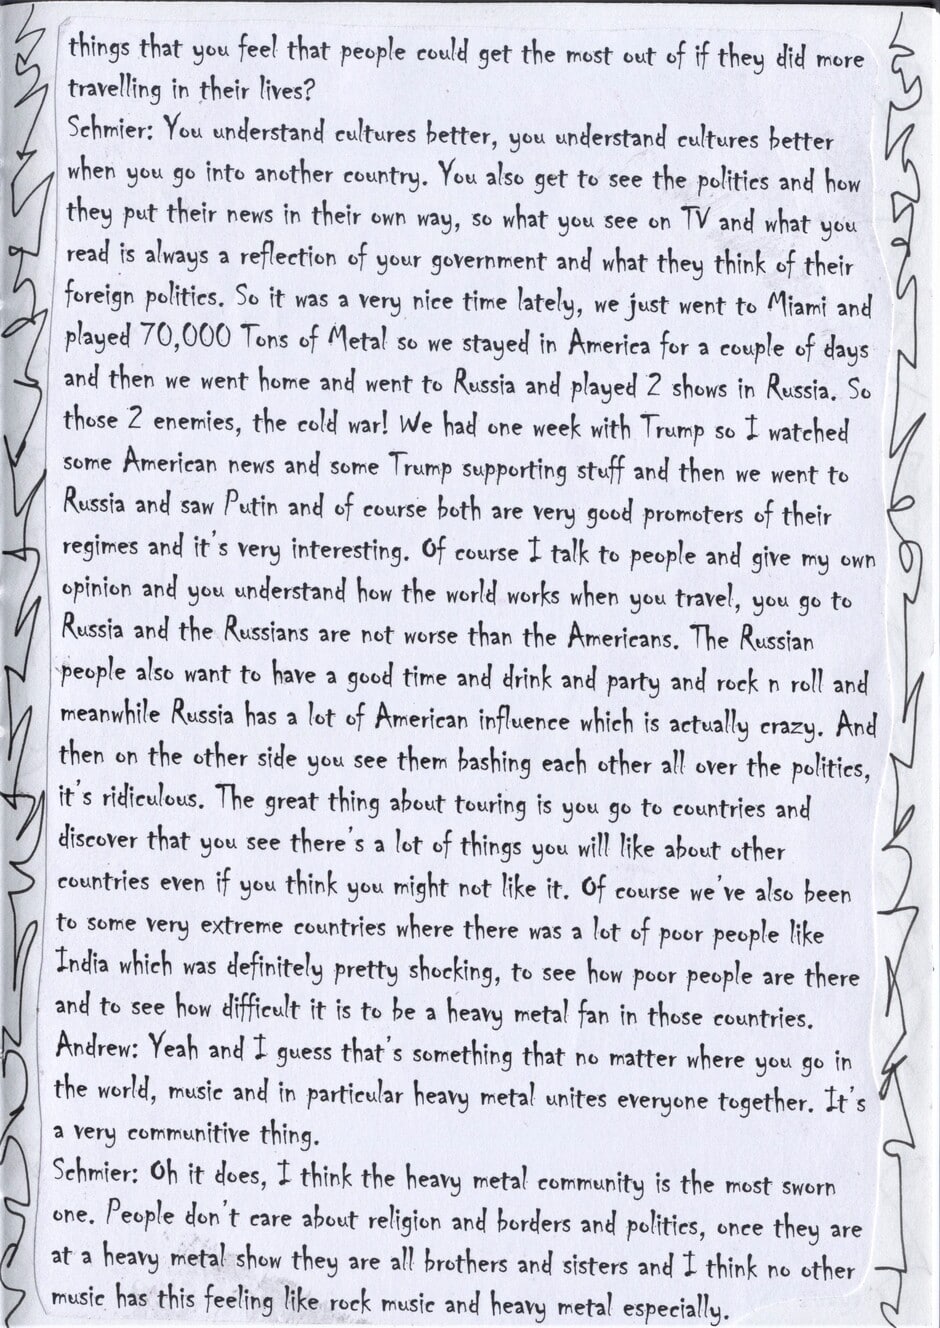 things that you feel that people could get the most out of if they did more
travelling in their lives?
Schmier: You understand cultures better, you understand cultures better
when you go into another country. You also get to see the politics and how
they put their news in their own way, so what you see on TV and what you
read is always a reflection of your government and what they think of their
foreign politics. So it was a very nice time lately, we just went to Miami and
played 70,000 Tons of Metal so we stayed in America for a couple of days
and then we went home and went to Russia and played 2 shows in Russia. So
those 2 enemies, the cold war! We had one week with Trump so I watched
some American news and some Trump supporting stuff and then we went to
Russia and saw Putin and of course both are very good promoters of their
regimes and it's very interesting. Of course I talk to people and give my own
opinion and you understand how the world works when you travel, you go to
Russia and the Russians are not worse than the Americans. The Russian
people also want to have a good time and drink and party and rock n roll and
meanwhile Russia has a lot of American influence which is actually crazy. And
then on the other side you see them bashing each other all over the politics,
it's ridiculous. The great thing about touring is you go to countries and
discover that you see there's a lot of things you will like about other
countries even if you think you might not like it. Of course we've also been
to some very extreme countries where there was a lot of poor people like
India which was definitely pretty shocking, to see how poor people are there
and to see how difficult it is to be a heavy metal fan in those countries.
Andrew: Yeah and I guess that's something that no matter where you go in
the world, music and in particular heavy metal unites everyone together. It's
a very communitive thing.
Schmier: Oh it does, I think the heavy metal community is the most sworn
one. People don't care about religion and borders and politics, once they are
at a heavy metal show they are all brothers and sisters and I think no other
music has this feeling like rock music and heavy metal especially.